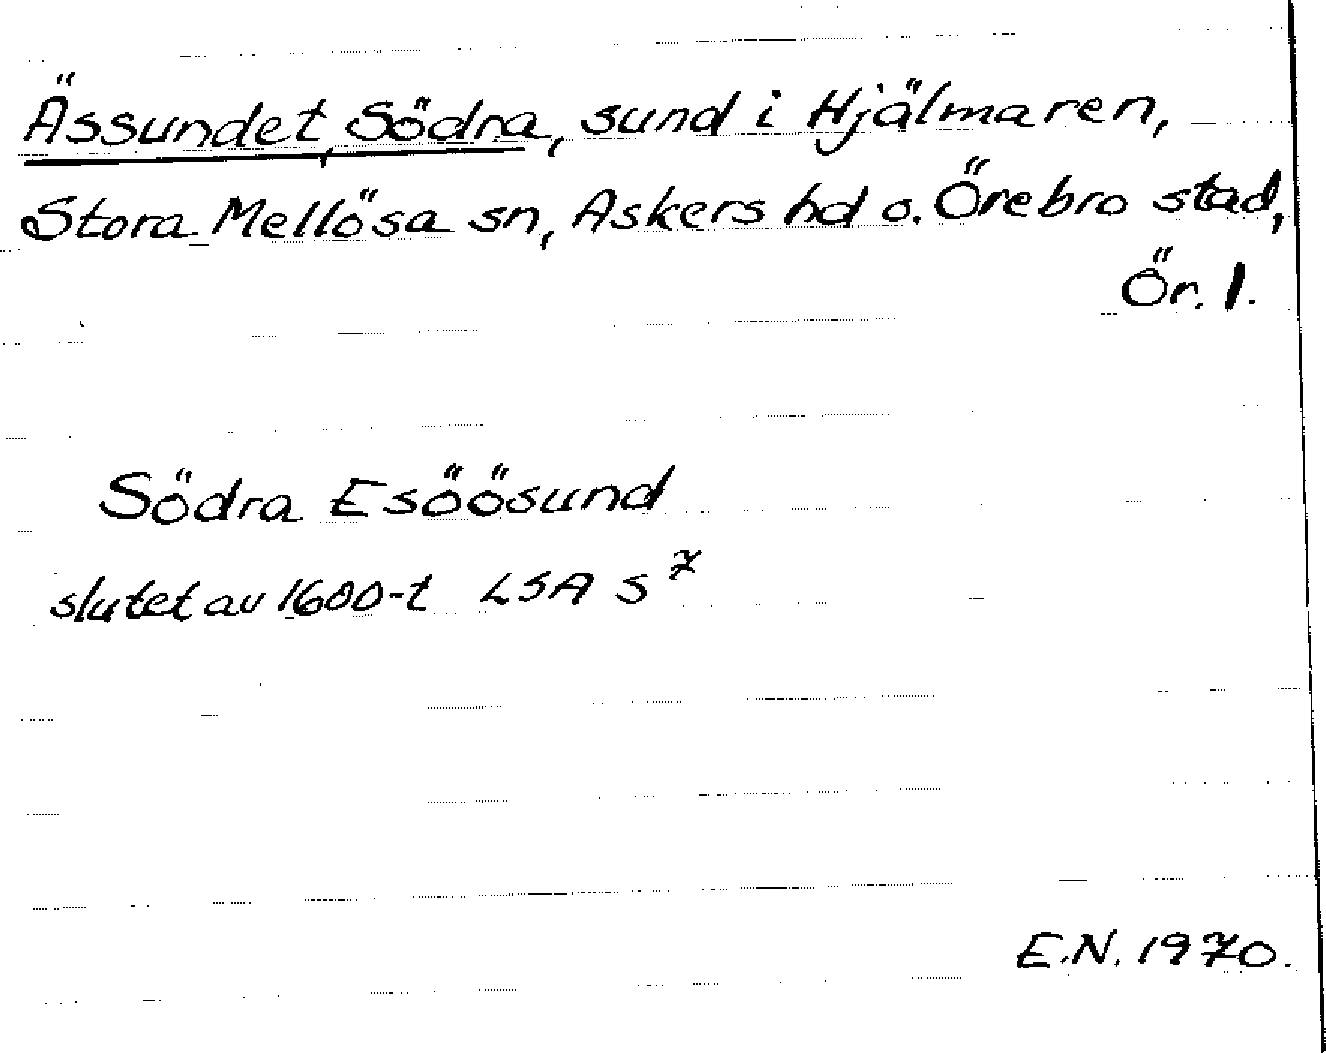 Ässundet, Södra, sund i Hjälmaren,
Stora Mellösa sn, Askers hd o. Örebro stad,
Ör. l.
Södra Esöösund
slutet av 1600-t LSA S 7
E.N. 1970.